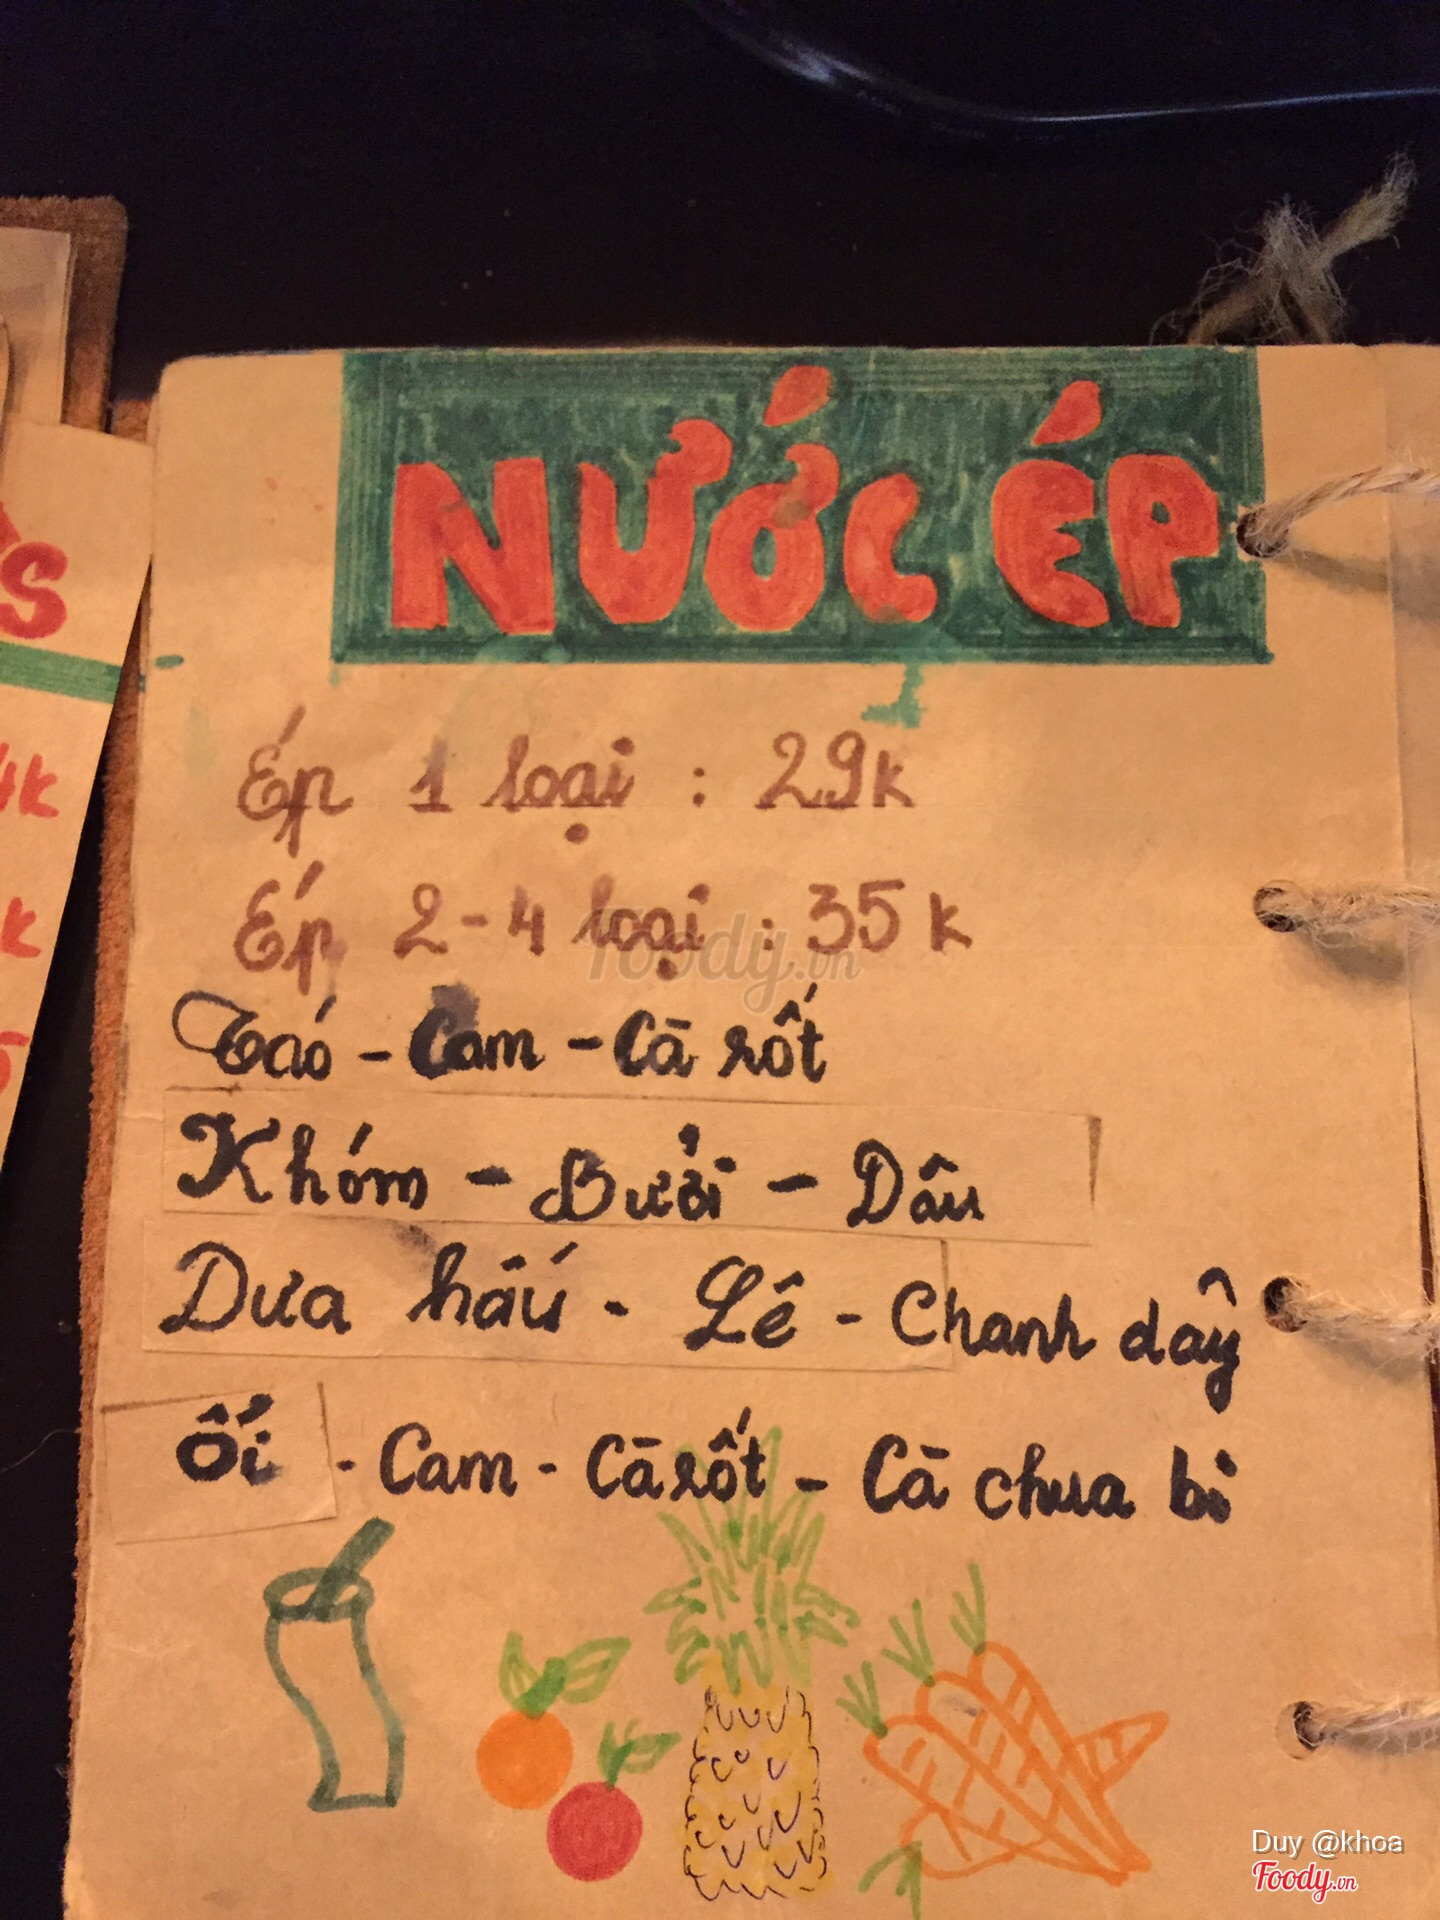 NƯỚC ÉP
Ép 1 loại : 29k
Ép 2-4 loại : 35k
Táo - Cam - Cà rốt
Khóm - Bưởi - Dâu
Dưa hấu - Lê - Chanh dây
Ổi - Cam - Cà rốt - Cà chua bi
S
4k
k
5
Foody.vn
Duy @khoa
Foody.vn